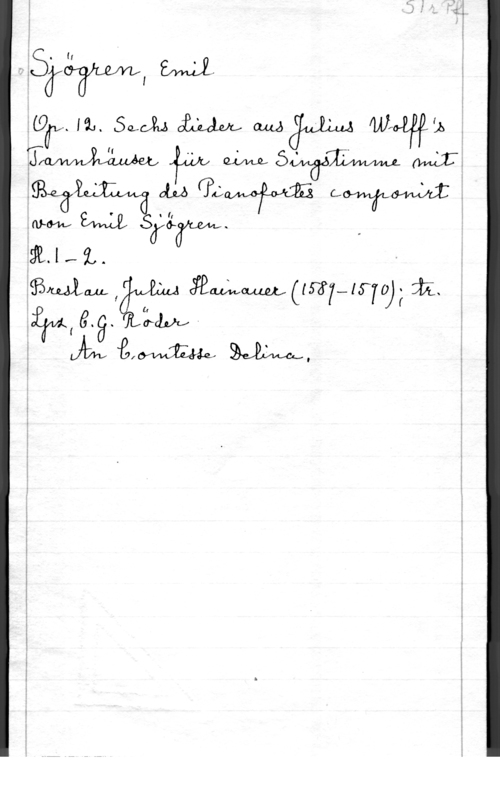 S1 r Pf
Sjögren, Emil
Op. 12. Sechs Lieder aus Julius Wolff's
Tannhäuser für eine Singstimme mit
Begleitung des Pianofortes componirt
von Emil Sjögren.
H. 1-2.
Breslau, Julius Hainauer (1589-1590); tr.
Lpz, C.G. Röder
An Comtesse Delina,